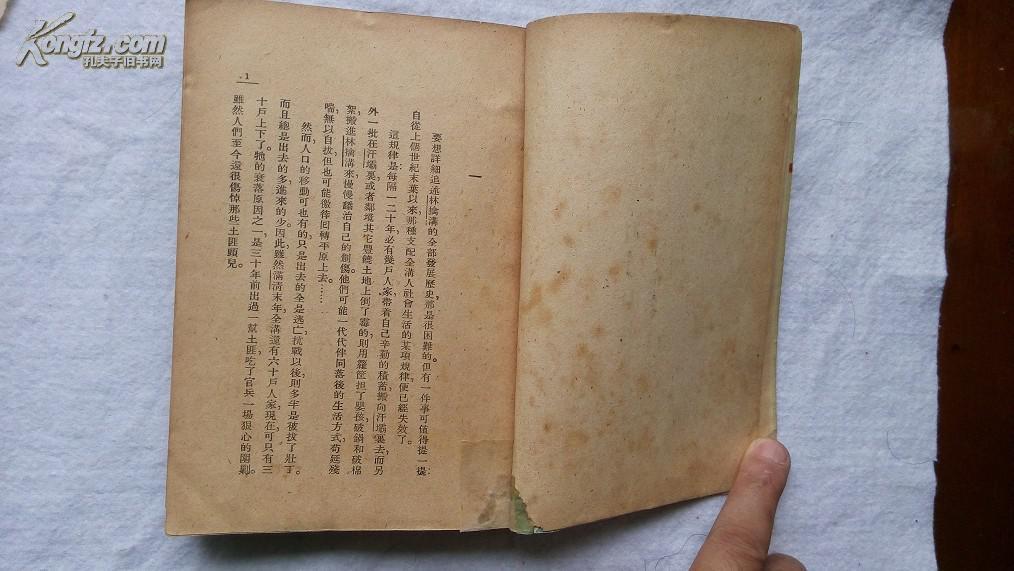 Kongfz.com
孔夫子旧书网
1
一
要想詳細追述林檎溝的全部發展歷史，那是很困難的。但有一件事可值得提一提：
自從上個世紀末葉以來那種支配全溝人社會生活的某項規律，便已經失效了。
這規律是：每隔一二十年，必有幾戶人家，帶着自己辛勤的積蓄，搬向汗壩裏去，而另
外一批在汗壩裏或者鄰境其它豐饒土地上倒了霉的，則用籮筐担了嬰孩、破鍋和破棉
絮，搬進林檎溝來，慢慢醫治自己的創傷。他們可能一代代伴同落後的生活方式，苟延殘
喘，無以自拔，但也可能徼倖回轉平原上去。……
然而，人口的移動可也有的，只是出去的全是逃亡，抗戰以後，則多半是被拔了壯丁。
而且總是出去的多，進來的少。因此，雖然滿清末年全溝還有六十戶人家，現在可只有三
十戶上下了。牠的衰落原因之一，是三十年前出過一幫土匪，吃了官兵一場狠心的圍剿。
雖然人們至今還很傷悼那些土匪頭兒。